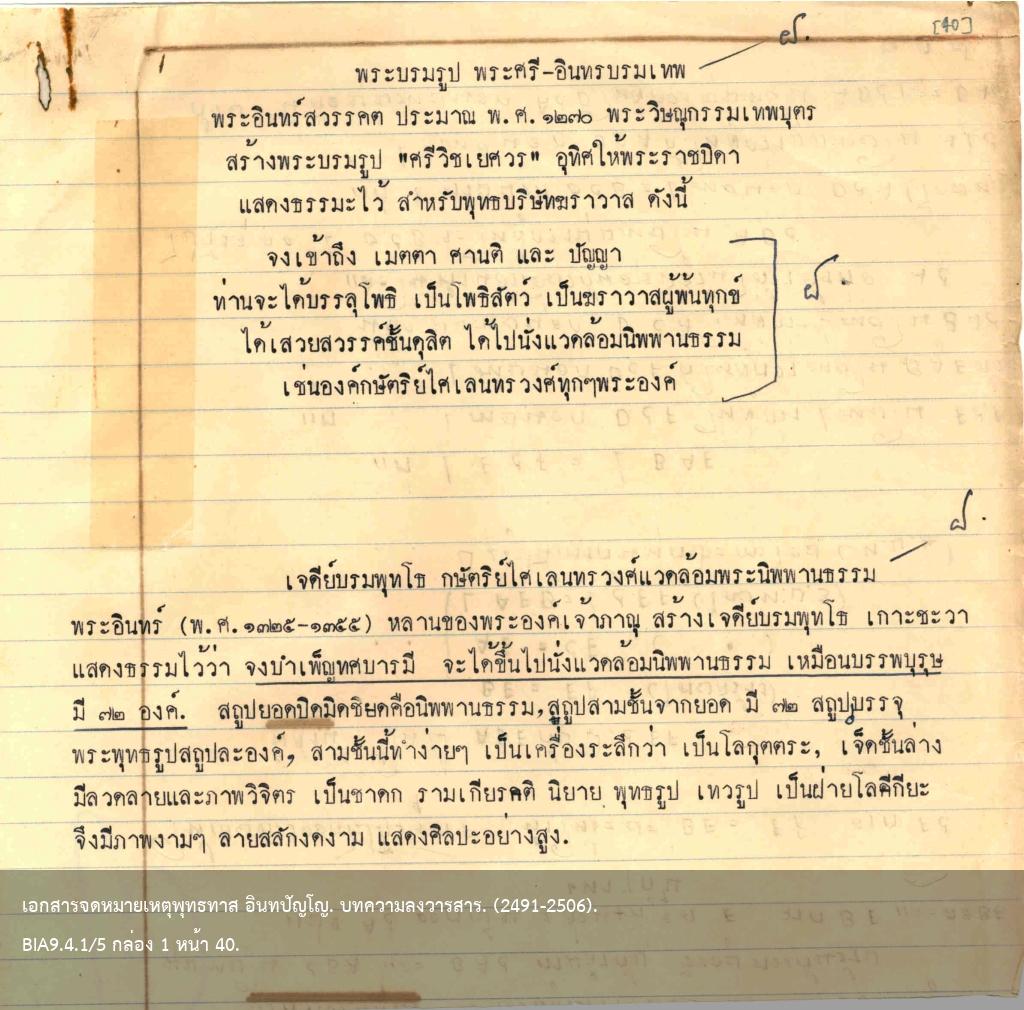 [40]
ฝ.
พระบรมรูป พระศรี-อินทรบรมเทพ
พระอินทร์สวรรคต ประมาณ พ.ศ. ๑๒๗๐ พระวิษณุกรรมเทพบุตร
สร้างพระบรมรูป "ศรีวิชเยศวร" อุทิศให้พระราชบิดา
แสดงธรรมะไว้ สำหรับพุทธบริษัทฆราวาส ดังนี้
จงเข้าถึง เมตตา ศานติ และ ปัญญา
ท่านจะได้บรรลุโพธิ เป็นโพธิสัตว์ เป็นฆราวาสผู้พ้นทุกข์
ฝ.
ได้เสวยสวรรค์ชั้นดุสิต ได้ไปนั่งแวดล้อมนิพพานธรรม
เช่นองค์กษัตริย์ไศเลนทรวงศ์ทุกๆพระองค์
ฝ.
เจดีย์บรมพุทโธ กษัตริย์ไศเลนทรวงศ์แวดล้อมพระนิพพานธรรม
พระอินทร์ (พ.ศ.๑๓๒๕-๑๓๕๕) หลานของพระองค์เจ้าภาณุ สร้างเจดีย์บรมพุทโธ เกาะชะวา
แสดงธรรมไว้ว่า จงบำเพ็ญทศบารมี จะได้ขึ้นไปนั่งแวดล้อมนิพพานธรรม เหมือนบรรพบุรุษ
มี ๗๒ องค์. สถูปยอดปิดมิดชิดคือนิพพานธรรม, สถูปสามชั้นจากยอด มี ๗๒ สถูปบรรจุ
พระพุทธรูปสถูปละองค์, สามชั้นนี้ทำง่ายๆ เป็นเครื่องระลึกว่า เป็นโลกุตตระ, เจ็ดชั้นล่าง
มีลวดลายและภาพวิจิตร เป็นชาดก รามเกียรติ นิยาย พุทธรูป เทวรูป เป็นฝ่ายโลคีกียะ
จึงมีภาพงามๆ ลายสลักงดงาม แสดงศิลปะอย่างสูง.
เอกสารจดหมายเหตุพุทธทาส อินทปัญโญ. บทความลงวารสาร. (2491-2506).
BIA9.4.1/5 กล่อง 1 หน้า 40.